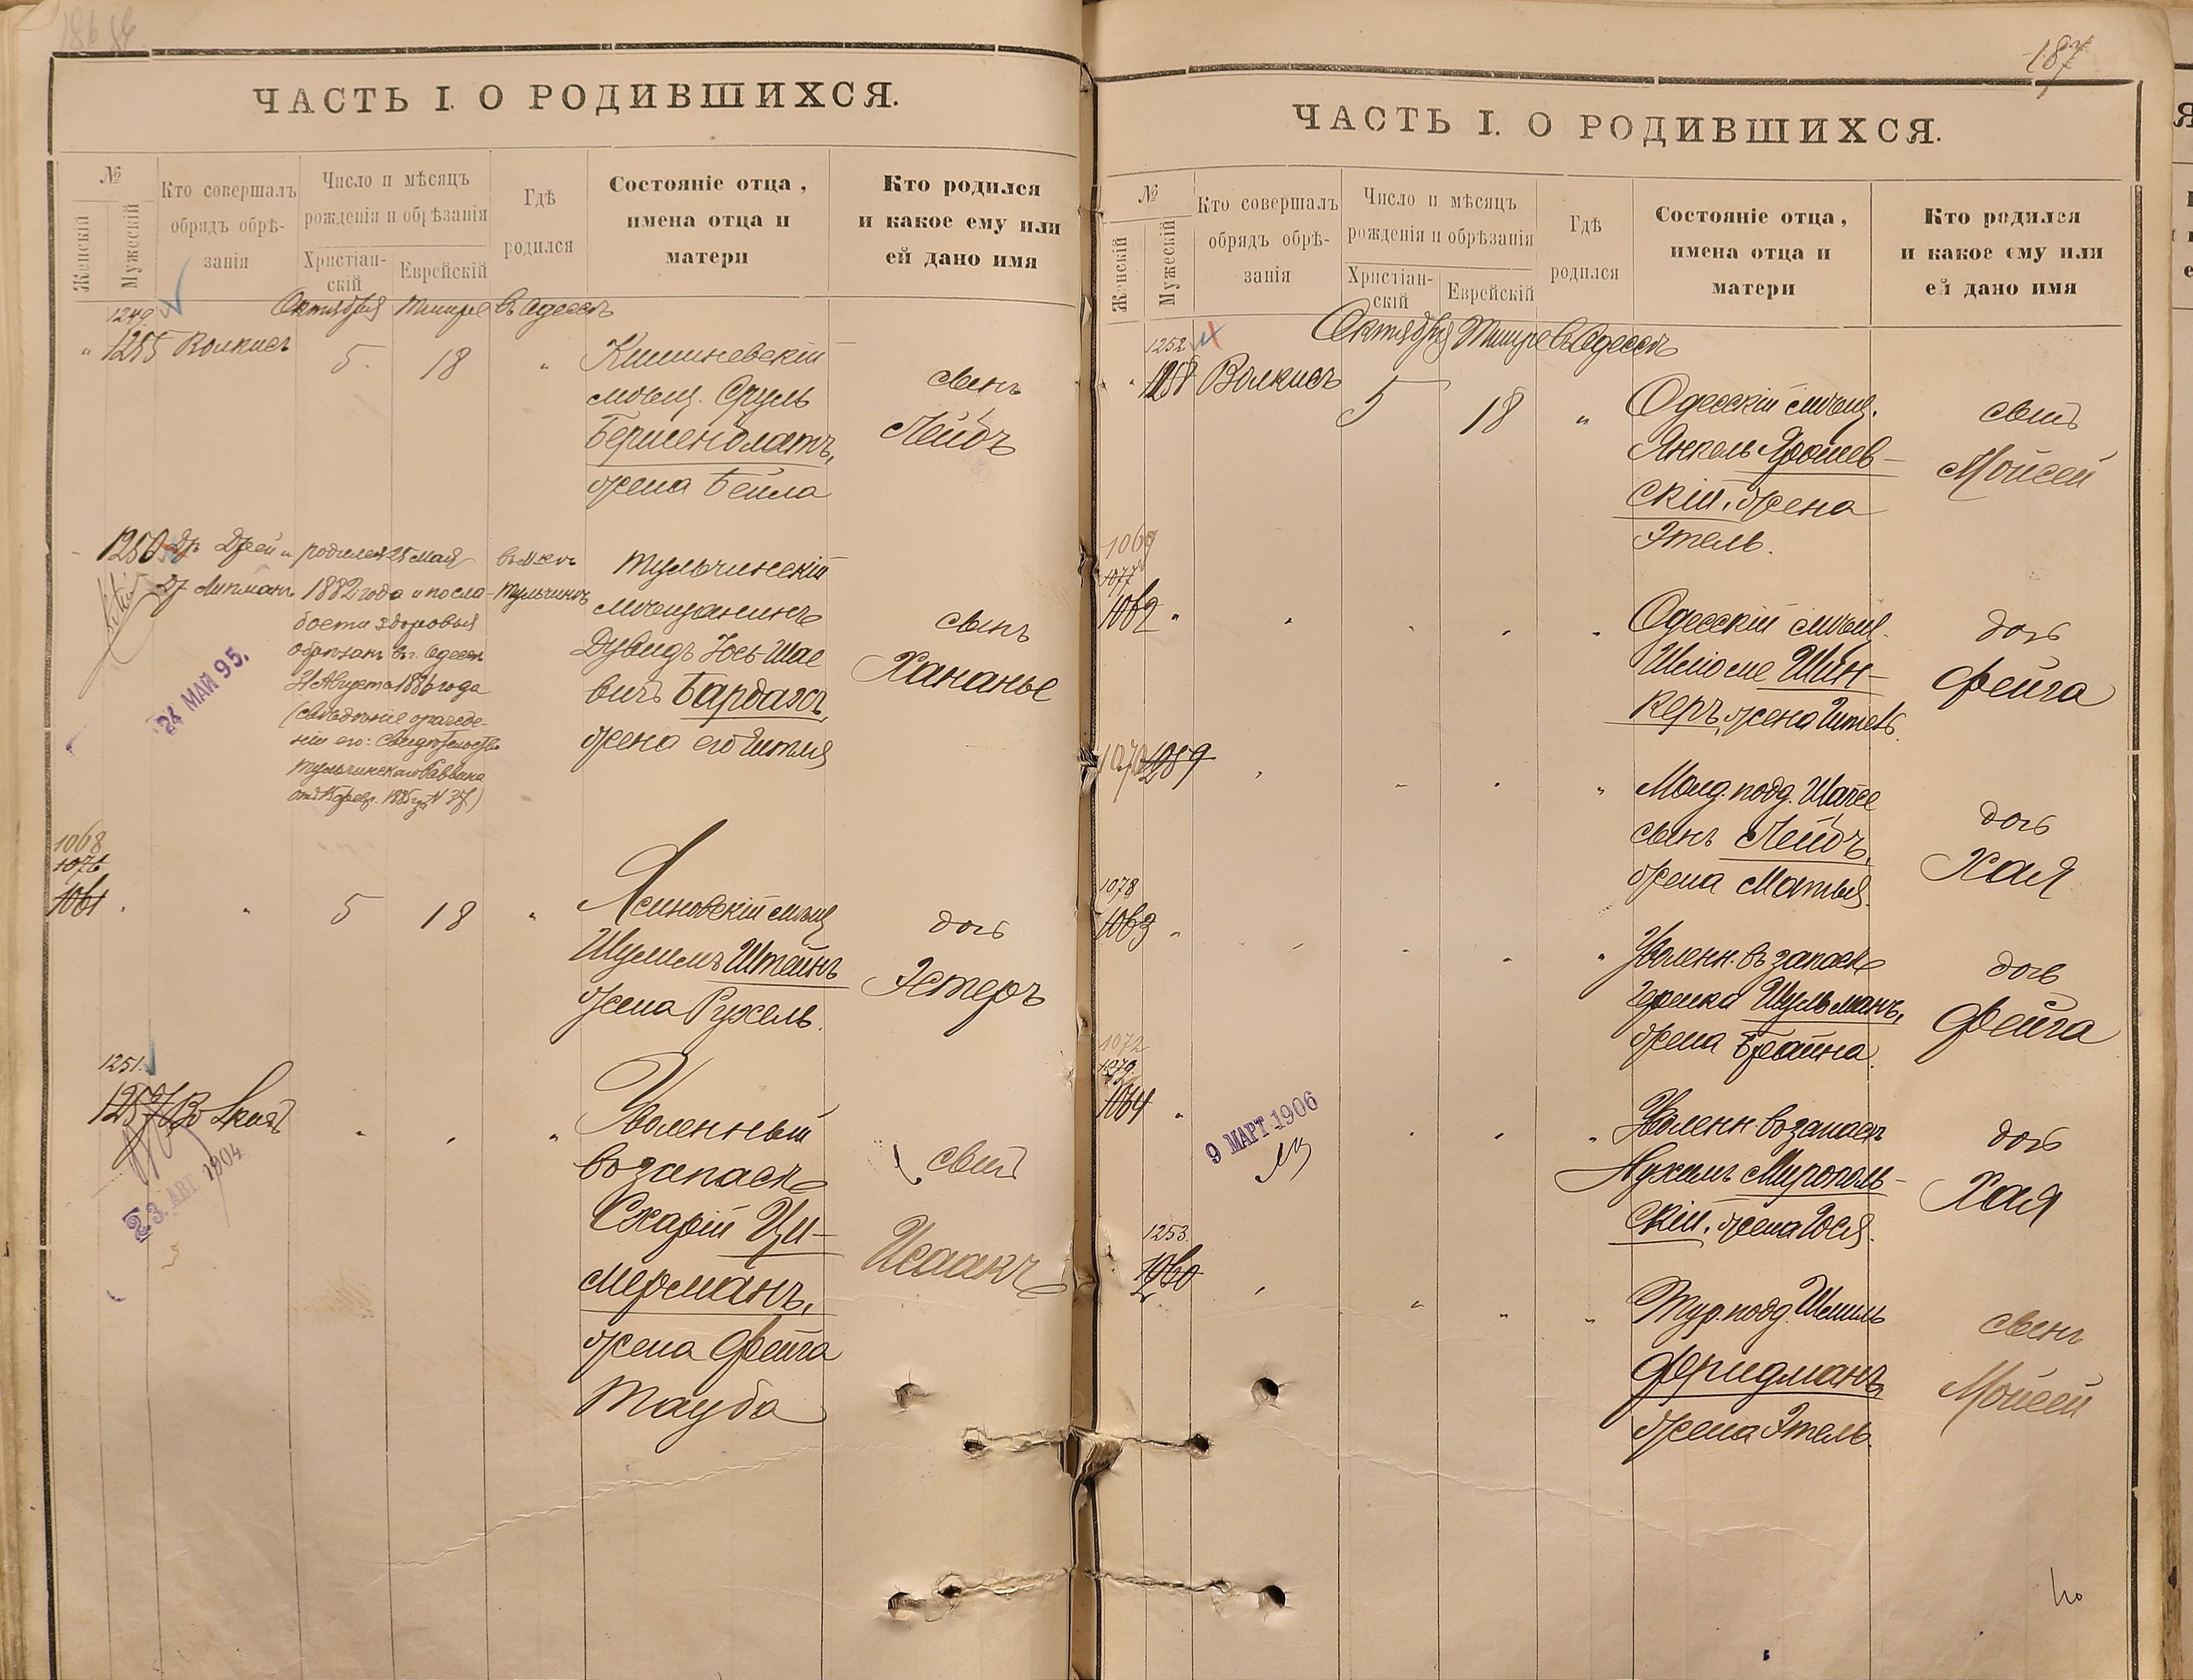 ЧАСТЬ I. О РОДИВШИХСЯ.
№
Женскій
Мужескій
Кто совершалъ
обрядъ обрѣ-
занія
Число и мѣсяцъ
рожденія и обрѣзанія
Христіан-
скій
Еврейскій
Гдѣ
родился
Состояніе отца,
имена отца и
матери
Кто родился
и какое ему или
ей дано имя
Октября Тишре въ Одессѣ
1249
" 1255 Волкисъ 5. 18 "
Кишиневскій
мѣщ. Сруль
Бершенблатъ,
жена Бейла
сынъ
Лейбъ
1250
Липманъ
родился 25 мая
1882 года и по сла-
бости здоровья
обрѣзанъ въ г. Одессѣ
Августа 1886 года
Тульчинскаго Раввина
въ м-кѣ
Тульчинѣ
Тульчинскій
мѣщанинъ
Дувидъ Іось-Шае
вичъ Бардахъ,
жена его Гитля
сынъ
Хананье
24 МАЙ 95.
1068
1076
1061 " " 5 18 "
Ясиновскій мѣщ
Шулимъ Штейнъ
жена Рухель.
дочь
Эстеръ
1251.
1257 Волкисъ " " "
Уволенный
въ запасъ
Схарій Ци-
мерманъ,
жена Фейга
Тауба
сынъ
Исаакъ
23 АВГ 1904
187
ЧАСТЬ I. О РОДИВШИХСЯ.
№
Женскій
Мужескій
Кто совершалъ
обрядъ обрѣ-
занія
Число и мѣсяцъ
рожденія и обрѣзанія
Христіан-
скій
Еврейскій
Гдѣ
родился
Состояніе отца,
имена отца и
матери
Кто родился
и какое ему или
ей дано имя
Октября Тишре въ Одессѣ
1252
" 1258 Волкисъ 5 18 "
Одесскій мѣщ.
Янкель Ярошев-
скій, жена
Этель.
сынъ
Мойсей
1069
1077
1062 " " " " "
Одесскій мѣщ.
Шлiоме Шин-
керъ, жена
дочь
Фейга
1070 1259 " " " "
Молд. подд. Шапсе
сынъ Лейбъ,
жена Матья.
дочь
Хая
1078
1063 " " " " "
Уволенн. въ запасъ
Гершко Шульманъ,
жена Брайна.
дочь
Фейга
1072
1079.
1064 " " " "
Уволенн. въ запасъ
Нухимъ Мирополь-
скій, жена Хося.
дочь
Хая
9 МАРТ 1906
1253.
1260 " " " "
Тур. подд. Шмиль
Фридманъ,
жена Этель.
сынъ
Мойсей